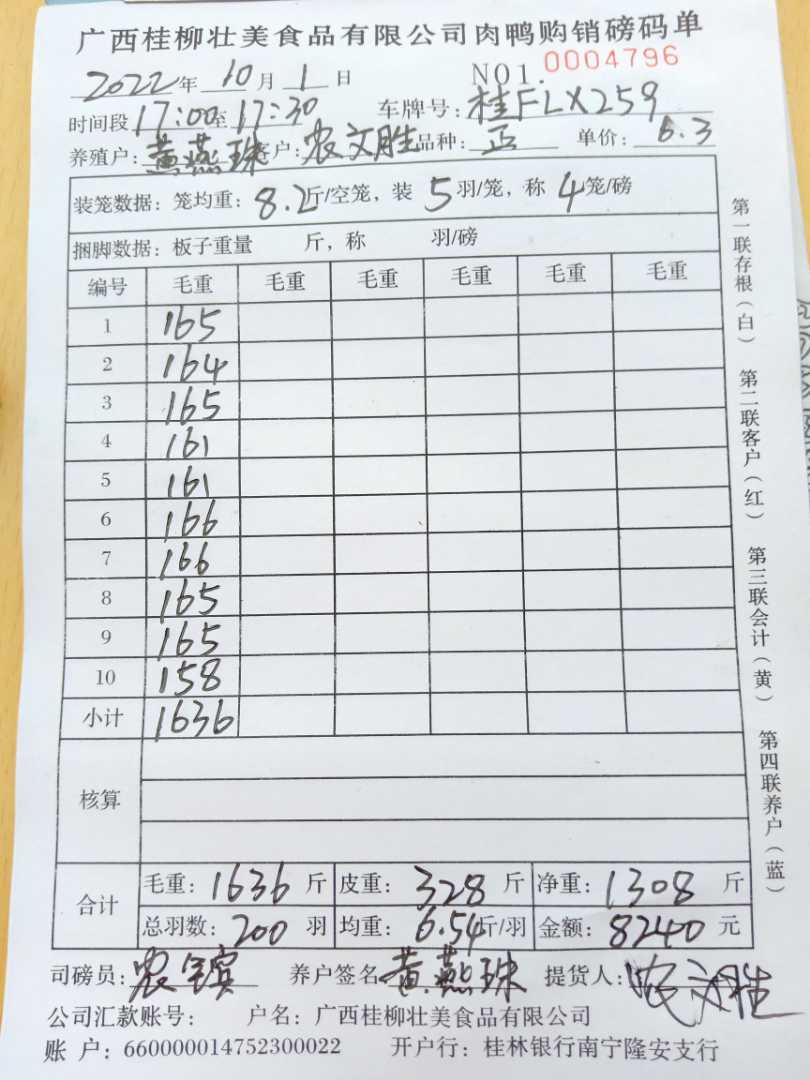 广西桂柳壮美食品有限公司肉鸭购销磅码单
2022年10月1日 NO1.0004796
时间段17:00至17:30 车牌号:桂FLX259
养殖户:黄燕珠客户:农文胜品种:正 单价:6.3
装笼数据:笼均重:8.2斤/空笼,装5羽/笼,称4笼/磅
捆脚数据:板子重量 斤,称 羽/磅
编号 毛重 毛重 毛重 毛重 毛重 毛重
1 165
2 164
3 165
4 161
5 161
6 166
7 166
8 165
9 165
10 158
小计 1636
核算
合计 毛重:1636斤 皮重:328斤 净重:1308斤
总羽数:200羽 均重:6.54斤/羽 金额:8240元
司磅员:农 养户签名 黄燕珠 提货人:农文胜
公司汇款账号: 户名:广西桂柳壮美食品有限公司
账户:660000014752300022 开户行:桂林银行南宁隆安支行
第一联存根(白) 第二联客户(红) 第三联会计(黄) 第四联养户(蓝)